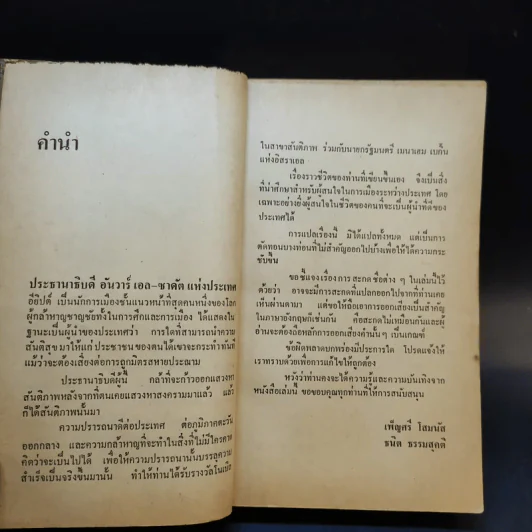 คำนำ
ประธานาธิบดี อันวาร์ เอล-ซาดัต แห่งประเทศ
อียิปต์ เป็นนักการเมืองชั้นแนวหน้าที่สุดคนหนึ่งของโลก
ผู้กล้าหาญชาญชัยทั้งในการศึกและการเมือง ได้แสดงใน
ฐานะเป็นผู้นำของประเทศว่า การใดที่สามารถนำความ
สันติสุขมาให้แก่ ประชาชนของตนได้เขาจะกระทำทันที
แม้ว่าจะต้องเสี่ยงต่อการถูกมิตรสหายประณาม
ประธานาธิบดีผู้นี้ กล้าที่จะก้าวออกแสวงหา
สันติภาพหลังจากที่ตนเคยแสวงหาสงครามมาแล้ว แล้ว
ก็ได้สันติภาพนั้นมา
ความปรารถนาดีต่อประเทศ ต่อภูมิภาคตะวัน
ออกกลาง และความกล้าหาญที่จะทำในสิ่งที่ไม่มีใครคาด
คิดว่าจะเป็นไปได้ เพื่อให้ความปรารถนานั้นบรรลุความ
สำเร็จเป็นจริงขึ้นมานั้น ทำให้ท่านได้รับรางวัลโนเบิล
ในสาขาสันติภาพ ร่วมกับนายกรัฐมนตรี เมนาเฮม เบกิ้น
แห่งอิสราเอล
เรื่องราวชีวิตของท่านที่เขียนขึ้นเอง จึงเป็นสิ่ง
ที่น่าศึกษาสำหรับผู้สนใจในการเมืองระหว่างประเทศ โดย
เฉพาะอย่างยิ่งผู้สนใจในชีวิตของคนที่จะเป็นผู้นำที่ดีของ
ประเทศได้
การแปลเรื่องนี้ มิได้แปลทั้งหมด แต่เป็นการ
ตัดทอนบางท่อนที่ไม่สำคัญออกไปบ้างเพื่อให้ได้ความกระ
ชับขึ้น
ขอชี้แจงเรื่องการสะกดชื่อต่าง ๆ ในเล่มนี้ไว้
ด้วยว่า อาจจะมีการสะกดที่แปลกออกไปจากที่ท่านเคย
เห็นผ่านตามา แต่ขอให้ถือเอาการออกเสียงเป็นสำคัญ
ในภาษาอังกฤษก็เช่นกัน คือสะกดไม่เหมือนกันและผู้
อ่านจะต้องถือหลักการออกเสียงคำนั้นๆ เป็นเกณฑ์
ข้อผิดพลาดบกพร่องมีประการใด โปรดแจ้งให้
เราทราบด้วยเพื่อการแก้ไขให้ถูกต้อง
หวังว่าท่านคงจะได้ความรู้และความบันเทิงจาก
หนังสือเล่มนี้ ขอขอบคุณทุกท่านที่ให้การสนับสนุน
เพ็ญศรี โสมนัส
ธนิต ธรรมสุคติ